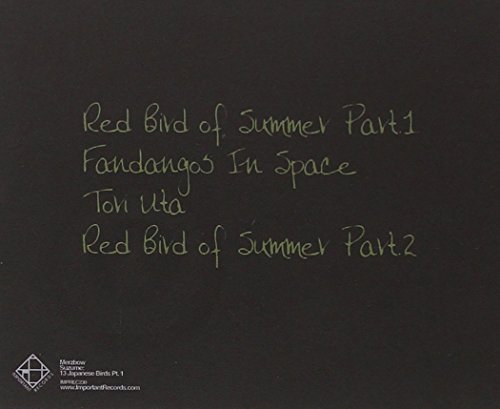 Red Bird of Summer Part.1
Fandangos In Space
Tori Uta
Red Bird of Summer Part.2
Merzbow
Suzume:
13 Japanese Birds Pt. 1
IMPREC230
www.ImportantRecords.com
IMPORTANT RECORDS